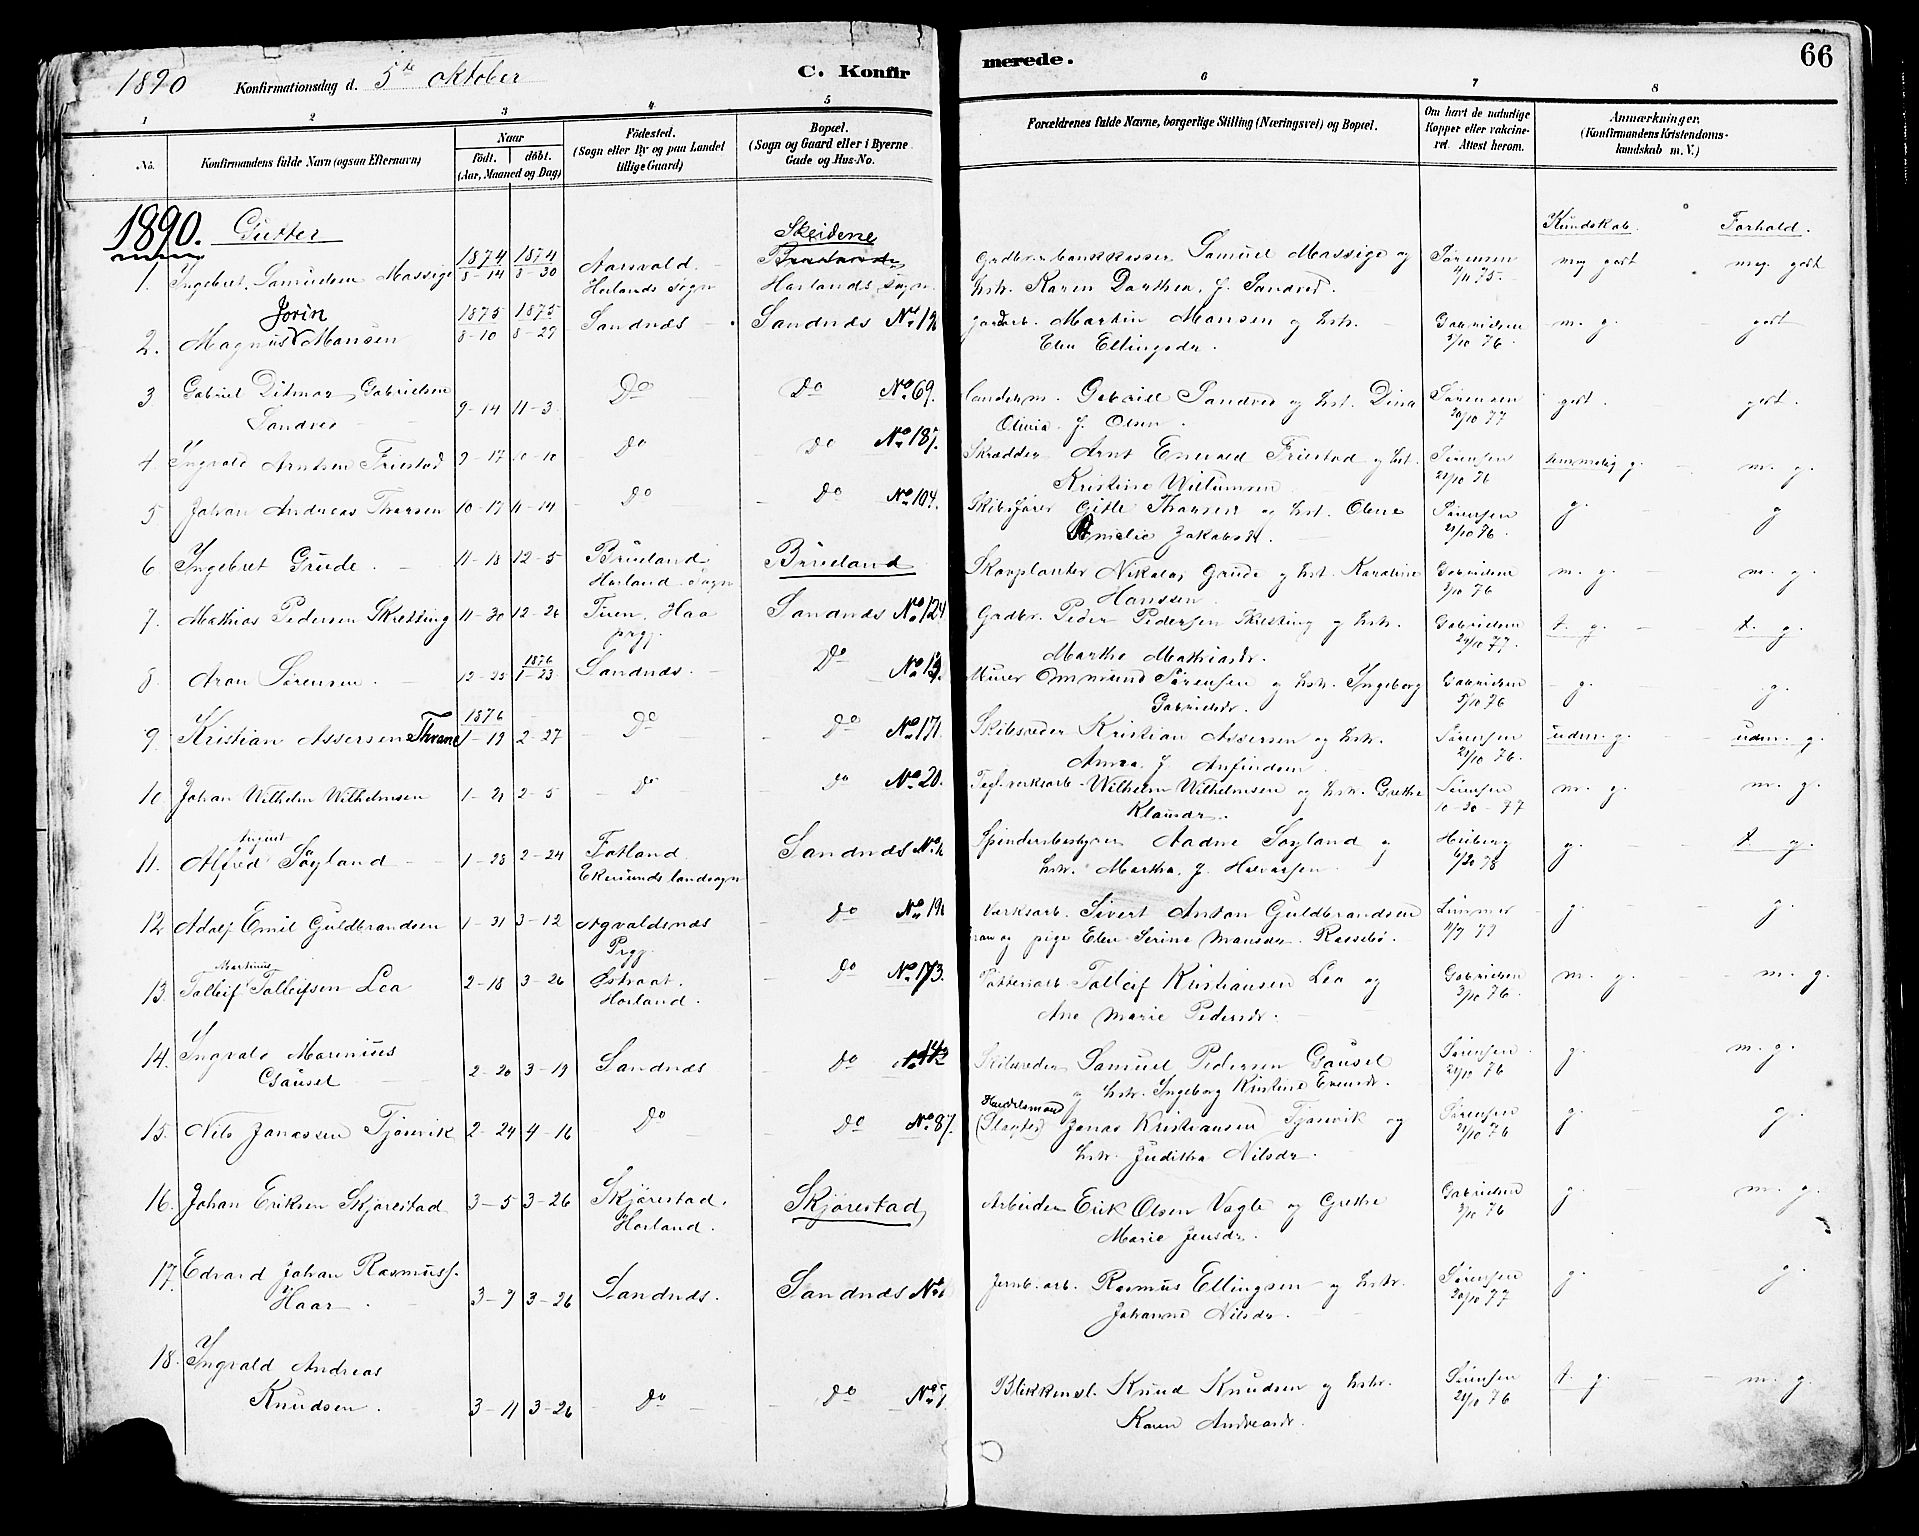 66
1890 Konfirmationsdag d. 5te oktober C. Konfir merede.
1 2 3 4 5 6 7 8
No. Konfirmandens fulde Navn (ogsaa Efternavn) Naar født. døbt. (Aar, Maaned og Dag) Fødested. (Sogn eller By og paa Landet tillige Gaard) Bopæl. (Sogn og Gaard eller i Byerne Gade og Hus-No. Forældrenes fulde Navne, borgerlige Stilling (Næringsvei) og Bopæl. Om havt de naturlige Kopper eller vakcineret. Attest herom. Anmærkninger. (Konfirmandens Kristendomskundskab m. V.)
1890. Gutter Kundskab. Forhold.
Skeidene
1. Ingebret Samuelsen Massige 1874 8-14 1874 8-30 Aarsvold Høilands sogn Høilands sogn Grdbr. bankkasser Samuel Massige og meg godt meg. godt
hstr. Karen Dorthea f. Sandved. Sørensen 75.
Jorin
2. Magnus Monsen 1875 8-10 1875 8-29 Sandnæs Sandnæs No. Martin Monsen og hstr. Gabrielsen m. g. godt
Elen Ellingsdr. 5/10 76.
3 Gabriel Ditmar Gabrielsen 9-14 11-3 Do Do No 69. Gabriel Sandved og hst. Dina Sørensen godt. godt.
Sandved Olivia f. Olsen. 20/10 77
4. Ingvald Arntsen Friestad 9-17 10-10 Do Do No 187. Skrædder Arnt Enevald Friestad og hst. Sørensen temmelig g. m. g.
Kristine Willumsen 21/10 76
5 Johan Andreas Thorsen 10-17 11-14 Do Do No 104. Skibsfører Gitle Thorsen og hst. Olene Sørensen g. g
Amelie Jakobsdr. 21/10 76.
6 Ingebret Grude. 11-18 12-5 Brueland Høiland Sogn Brueland Skovplanter Nikolai Grude og hst. Karoline Gabrielsen m. g. m. g.
Hanssen 3/10 76
7. Mathias Pedersen Skretting 11-30 12-26 Haa prgj. Sandnæs No 124 Grdbr. Peder Pedersen Skretting og hstr. Gabrielsen t. g. t. g.
Marthe Mathiasdr. 77.
8. Aron Sørensen. 12-25 1876 1-23 Sandnæs. Do No Murer Ommund Sørensen og hstr. Ingeborg Gabrielsen g. g.
Gabrielsdr. 5/10 76
9. Kristian Assersen Thrane 1876 1-19 2-27 Do Do No 171. Skibsreder Kristian Assersen og hstr. Sørensen udm. g. udm. g.
Anna f. Anfindsen 21/10 76.
10. Johan Wilhelm Wilhelmsen 1-21 2-5 Do Do No 20. Teglverksarb. Wilhelm Wilhelmsen og hstr. Grethe Sørensen m. g. m. g.
Klausdr. 10-20-77
August
11. Alfred Søyland 1-23 2-24 Fotland Ekersunds landsogn Sandnæs No. Spinderibestyrer Aadne Søyland og Heiberg g. t. g.
hstr. Martha f. Halvorsen. 78
12 Adolf Emil Guldbrandsen 1-31 3-12 Agvaldsnæs Prgj. Do No Værksarb. Sivert Anton Guldbrandsen g. g.
og pige Elen Serine Monsdr. Rossebø.
Martinus
13. Tolleif Tolleifsen Lea 2-18 3-26 Østraat. Høiland. Do No 173. Pottemarb. Tolleif Kristiansen Lea og Gabrielsen m. g. m. g.
Ane Marie Pedersdr. 3/10 76.
14. Ingvald Marenius 2-20 3-19 Sandnæs Do No Skibsreder Samuel Pedersen Gausel Sørensen g. m. g.
Gausel og hstr. Ingeborg Kristine Evensdr. 21/10 76
15. Nils Jonassen Tjørvik 2-24 4-16 Do Do No 87. Handelsmand (Slagter) Jonas Kristiansen Tjørvik og Sørensen g. g.
hstr. Juditha Nilsdr. 21/10 76
16. Johan Eriksen Skjørestad 3-5 3-26 Skjørestad. Høiland. Skjørestad, Arbeider Erik Olsen Vagle og Grethe Gabrielsen g. m. g.
Marie Jensdr. 3/10 76
17. Edvard Johan Rasmuss. 3-9 3-26 Sandnæs. Sandnæs No. Jernb. arb. Rasmus Ellingsen og hstr. Sørensen g. g.
Haar. Johanne Nilsdr. 20/10 77
18. Ingvald Andreas 3-11 3-26 Do Do No. Blikkensl. Knud Knudsen og hstr. Sørensen t. g. m. g.
Knudsen. Karen Andreasdr. 21/10 76